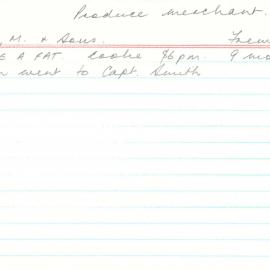 Produce merchant.
, M. & Sons.
E A PAT. Cooke $6pm. 9 mo
n went to Capt. Smith